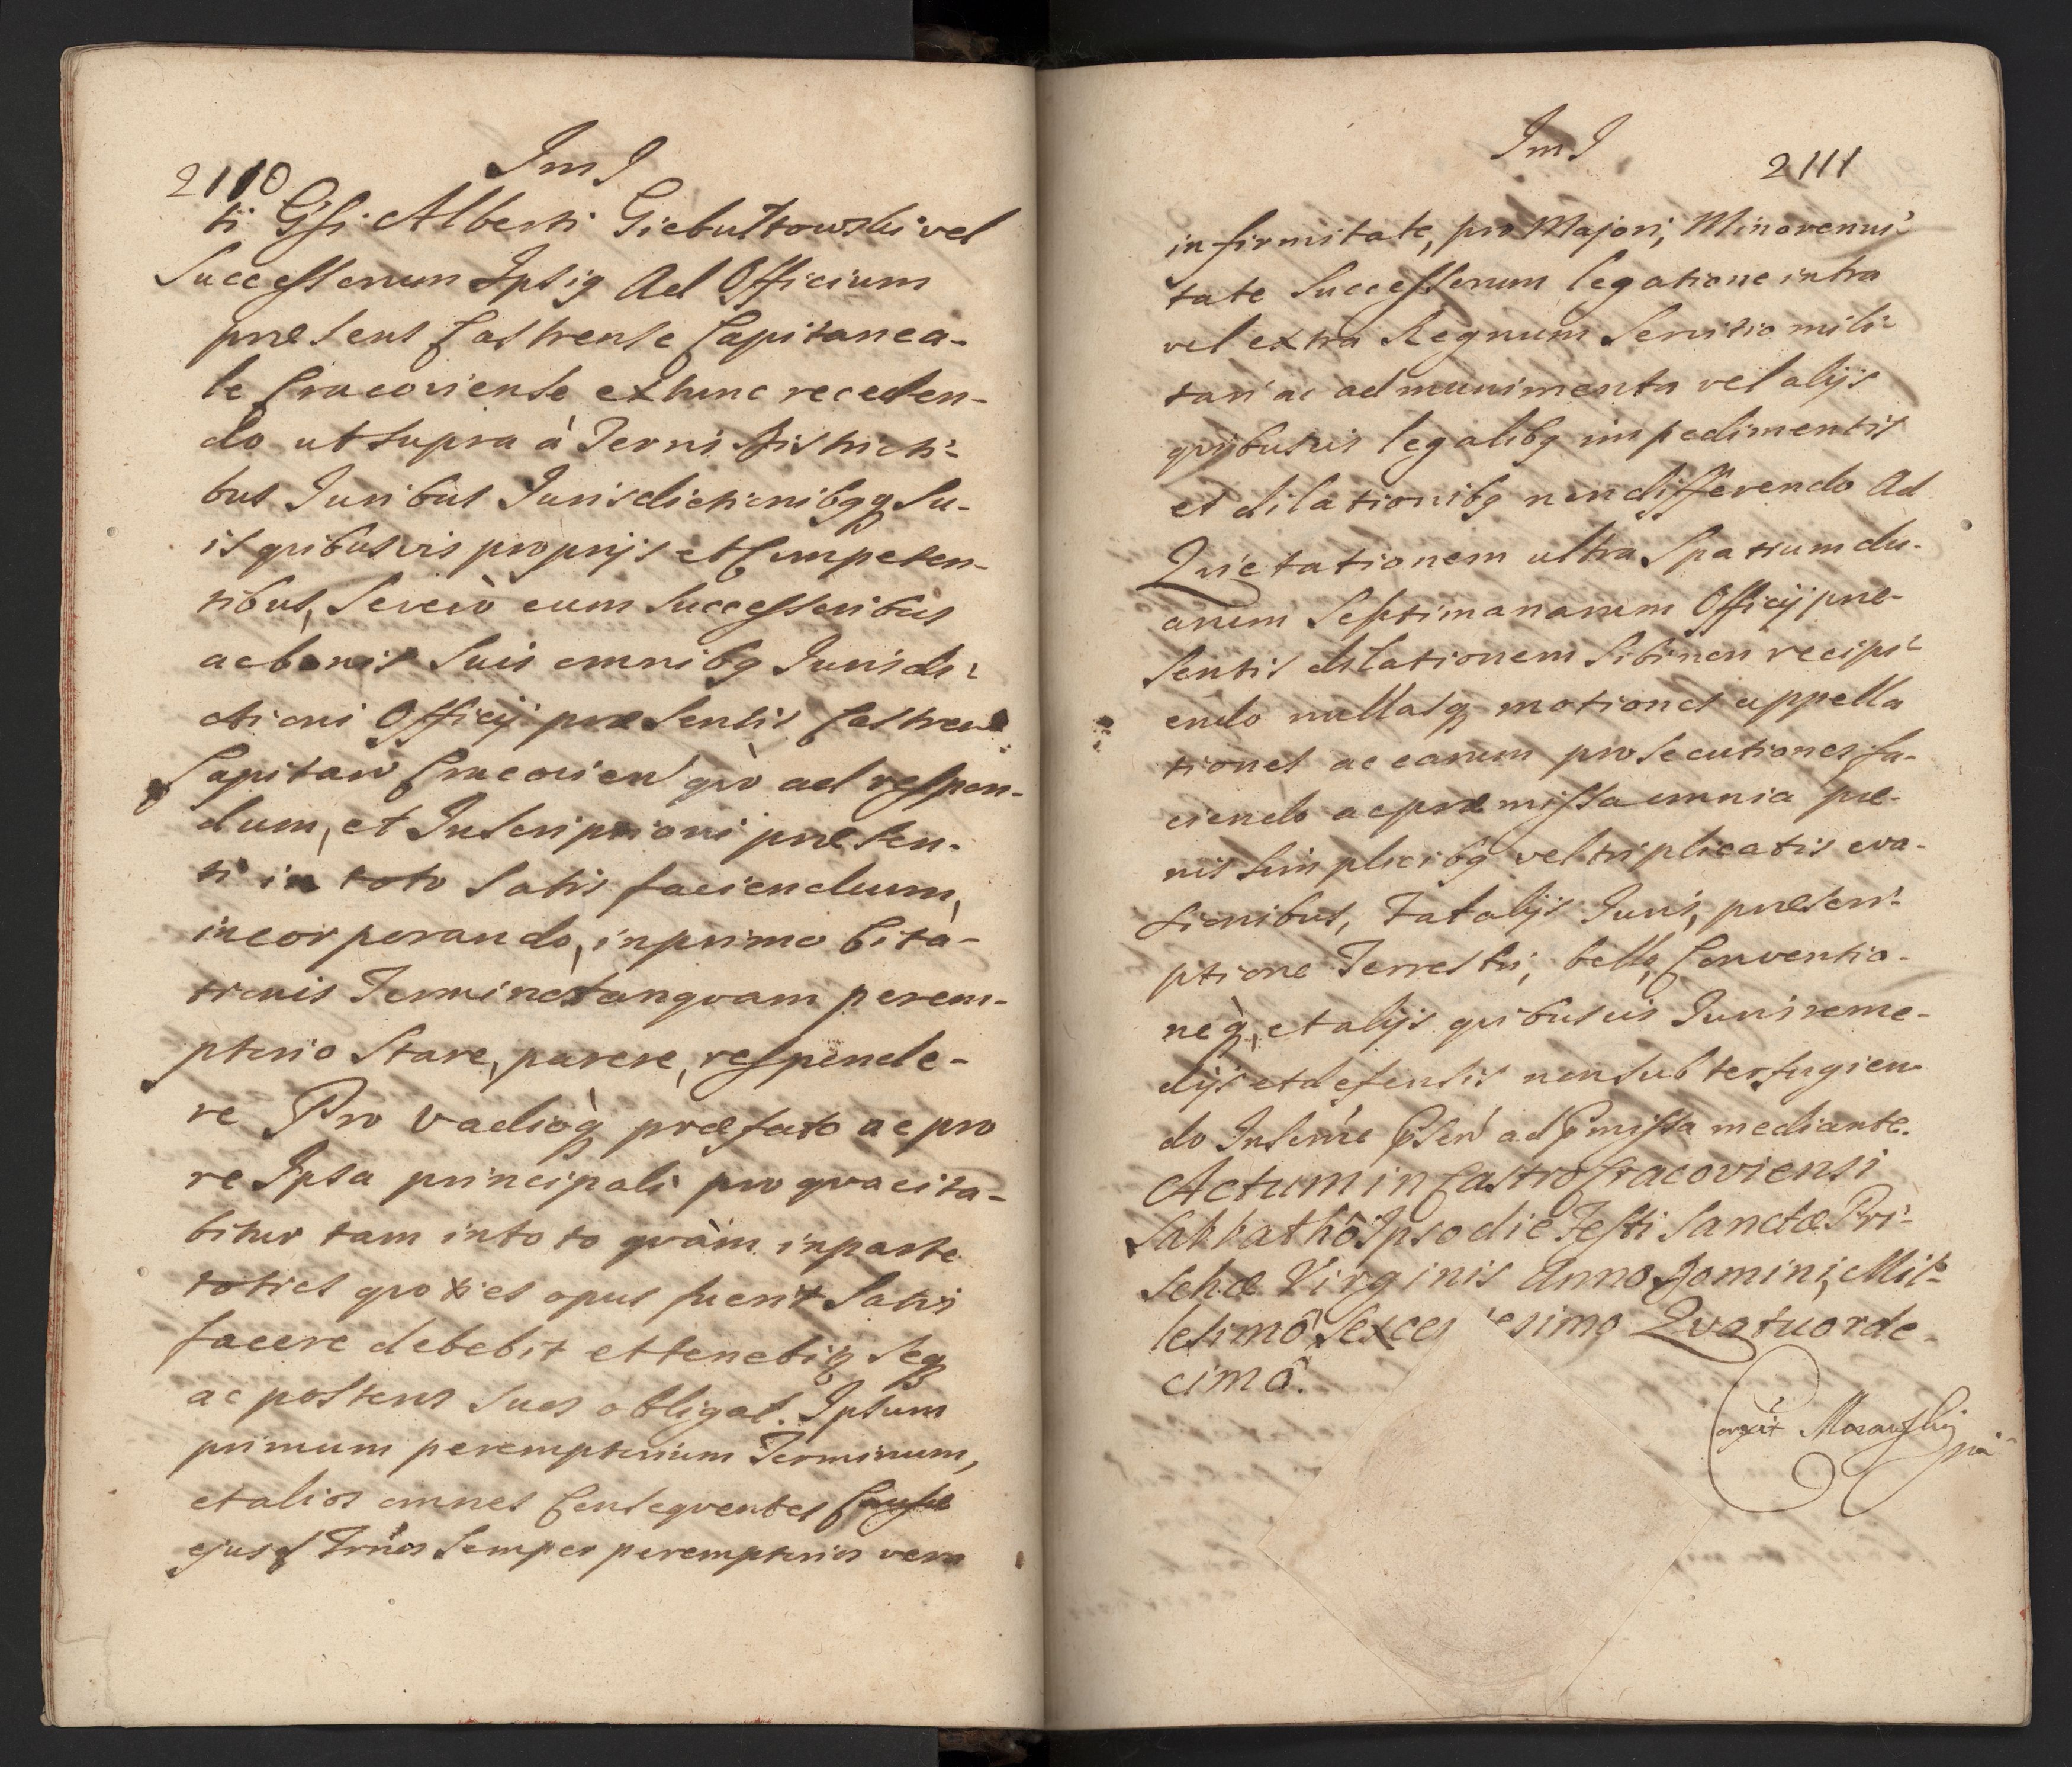 2110
ImJ
ti Gsi Alberti Giebułtowski vel
Successorum Ipsiq Ad Officium
præsens Castrense Capitanea-
le Cracoviense exhinc receden-
do ut supra à Terris Districti-
bus Juribus Jurisdictionibqq Su-
is quibusvis proprijs et Competen-
tibus, Severò cum Successoribus
ac bonis Suis omnibq Jurisdi-
ctioni Officij præsentis Castren
Capitan Cracovien quò ad respon-
dum, et Inscriptioni præsen-
ti in toto Satis faciendum,
incorporando, inprimo Cita-
tionis Termino tanquam perem-
ptorio Stare, parere, responde-
re Pro vadioq præfato ac pro
re Ipsa principali pro qua cita-
bitur tam in toto quàm inparte
toties quoties opus fuerit Satis
facere debebit et tenebiq Seq
ac posteros Suos obligat. Ipsum
primum peremptorium Terminum,
et alios omnes Consequentes Causæ
ejusd Trnos Semper peremptorios vera
ImJ
2111
infirmitate, pro Majori, Minorenni-
tate Successorum legatione intra
vel extra Regnum Servitio mili-
tari ac ad munimenta vel alijs
quibusvis legalibq impedimentis
et dilationibq non differendo Ad
Quietationem ultra Spatium du-
arum Septimanarum Officij præ-
sentis dilationem Sibi non recipi-
endo nullasq motiones appella
tiones ac earum prosecutiones fa-
ciendo ac præmissa omnia pæ-
nis simplicibq vel triplicatis eva-
sionibus, Fatalijs Juris, præscri-
ptione Terrestri, bello, Conventio-
neq, et alijs quibusvis Juris reme-
dijs et defensis non subterfugien-
do Inscrine Psen ad Pmissa mediante.
Actum in Castro Cracoviensi
Sabbathô Ipso die Festi Sanctæ Pri-
schæ Virginis Anno Domini, Mil-
lesimô Sexcen esimo Quatuorde-
cimô.
Corexit Morawski
mp